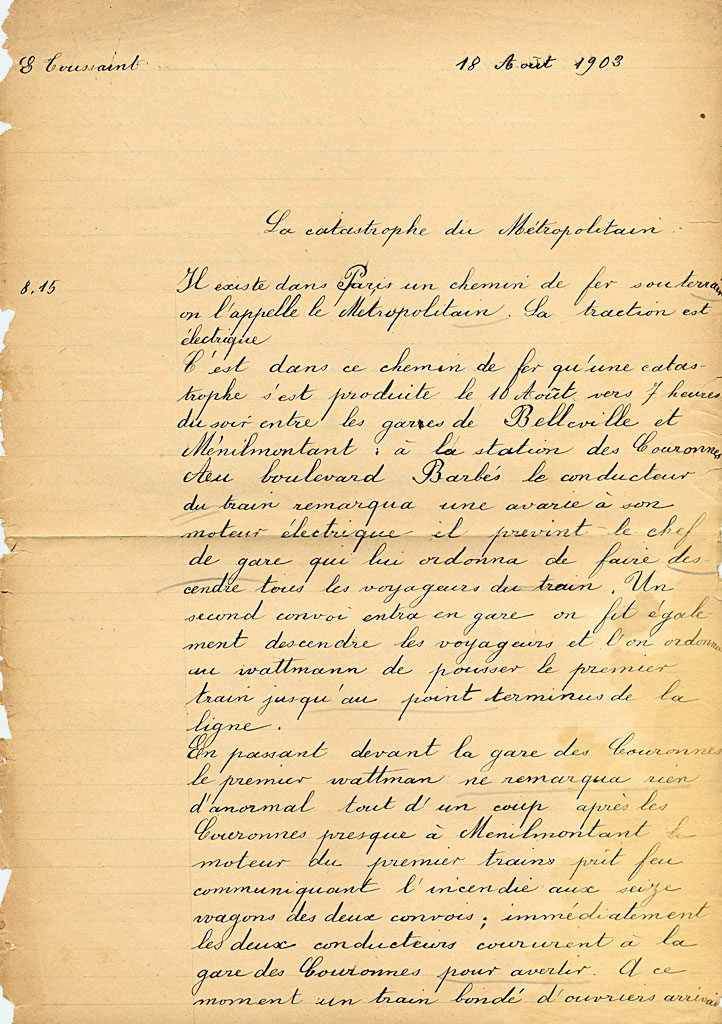 E Toussaint
18 Août 1903
La catastrophe du Métropolitain
8,15
Il existe dans Paris un chemin de fer souterrain
on l'appelle le Métropolitain. La traction est
électrique
C'est dans ce chemin de fer qu'une catas-
trophe s'est produite le 10 Août vers 7 heures
du soir entre les gares de Belleville et
Ménilmontant : à la station des Couronnes
Au boulevard Barbés le conducteur
du train remarqua une avarie à son
moteur électrique il prévint le chef
de gare qui lui ordonna de faire des
cendre tous les voyageurs du train. Un
second convoi entra en gare on fit égale
ment descendre les voyageurs et l'on ordonna
au wattmann de pousser le premier
train jusqu'au point terminus de la
ligne.
En passant devant la gare des Couronnes
le premier wattman ne remarqua rien
d'anormal tout d'un coup après les
Couronnes presque à Menilmontant le
moteur du premier trains prit feu
communiquant l'incendie aux seize
wagons des deux convois ; immédiatement
les deux conducteurs coururent à la
gare des Couronnes pour avertir. A ce
moment un train bondé d'ouvriers arrivai